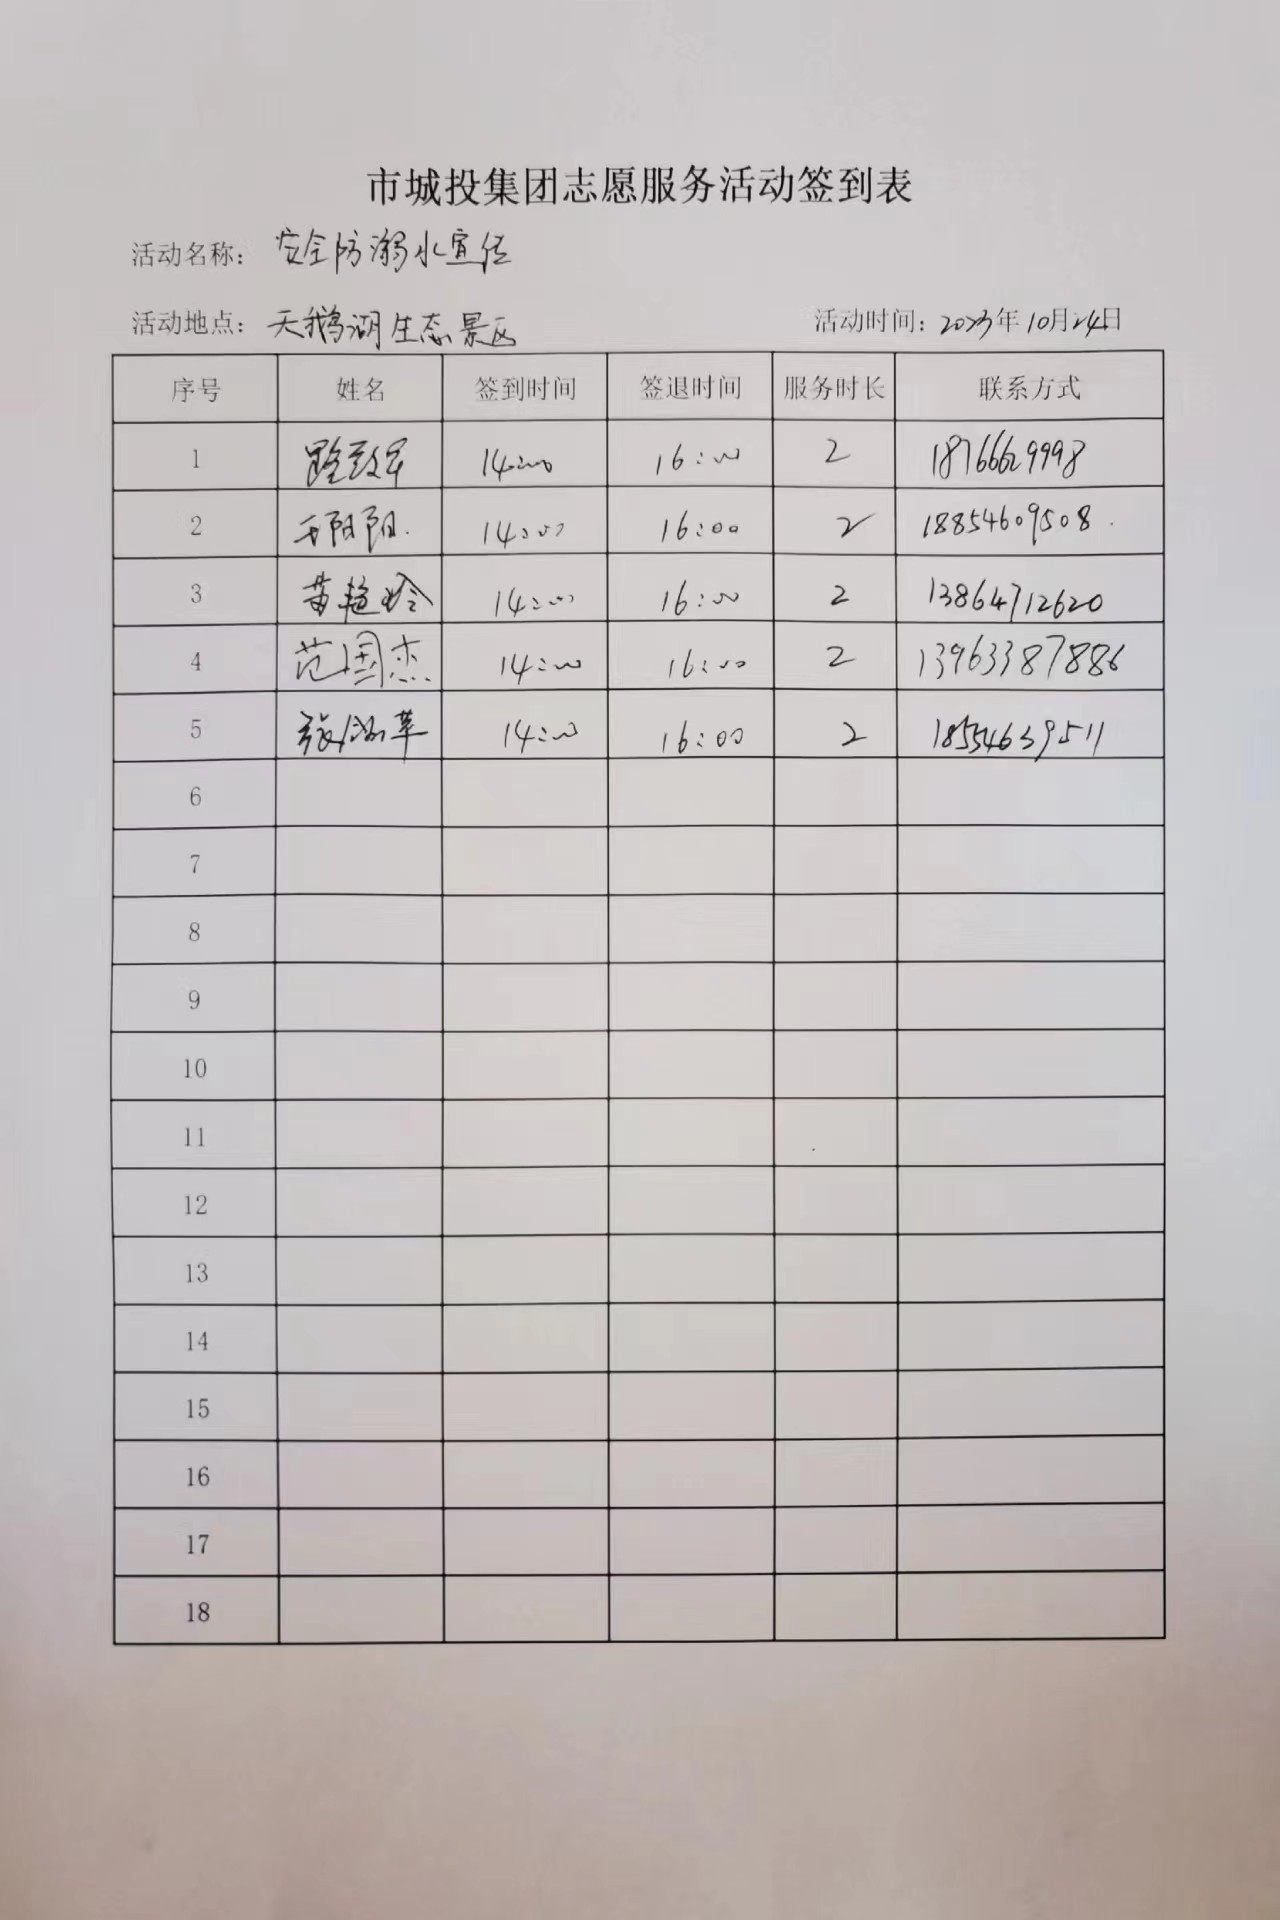 市城投集团志愿服务活动签到表
活动名称：安全防溺水宣传
活动地点：天鹅湖生态景区 活动时间：2023年10月24日
序号 姓名 签到时间 签退时间 服务时长 联系方式
1 14:00 16:00 2 18766629998
2 阳阳 14:00 16:00 2 18854609508
3 苗艳玲 14:00 16:00 2 13864712620
4 范国杰 14:00 16:00 2 13963387886
5 张 14:00 16:00 2 18554639511
6
7
8
9
10
11
12
13
14
15
16
17
18